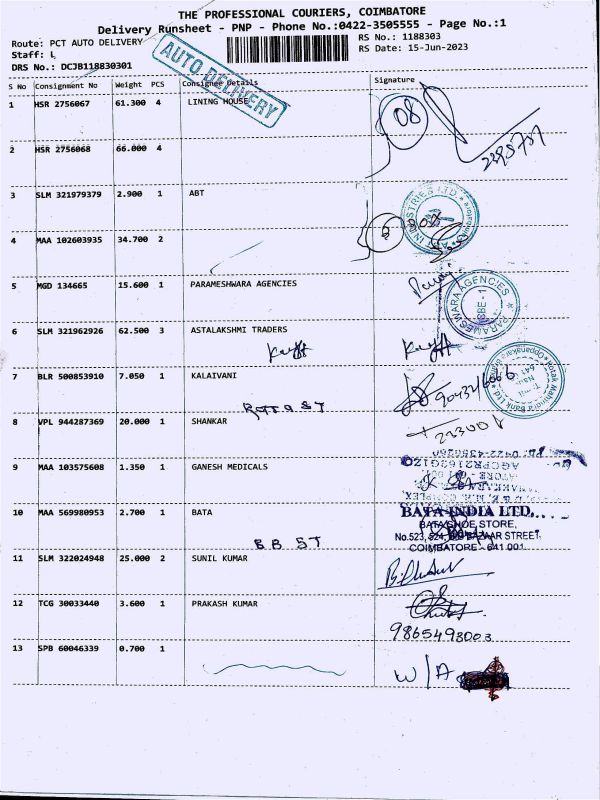 THE PROFESSIONAL COURIERS, COIMBATORE
Delivery Runsheet - PNP - Phone No.:0422-3505555 - Page No.:1
Route: PCT AUTO DELIVERY RS No.: 1188303
Staff: RS Date: 15-Jun-2023
DRS No.: DCJB118830301
AUTO DELIVERY
S No Consignment No Weight PCS Consignee Details Signature
1 HSR 2756067 61.300 4 LINING HOUSE
08
2 HSR 2756068 66.000 4
3 SLM 321979379 2.900 1 ABT
INDUSTRIES LTD
4 MAA 102603935 34.700 2
5 MGD 134665 15.600 1 PARAMESHWARA AGENCIES
PARAMESWARA AGENCIES
CBE - 1
6 SLM 321962926 62.500 3 ASTALAKSHMI TRADERS
Kotak Mahindra Bank Ltd
7 BLR 500853910 7.050 1 KALAIVANI
8 VPL 944287369 20.000 1 SHANKAR
9 MAA 103575608 1.350 1 GANESH MEDICALS
10 MAA 569980953 2.700 1 BATA
BATA INDIA LTD.
BATA SHOE STORE,
No.523, 524, BIG BAZAAR STREET,
COIMBATORE - 641 001
B B ST
11 SLM 322024948 25.000 2 SUNIL KUMAR
12 TCG 30033440 3.600 1 PRAKASH KUMAR
13 SPB 60046339 0.700 1
W/A